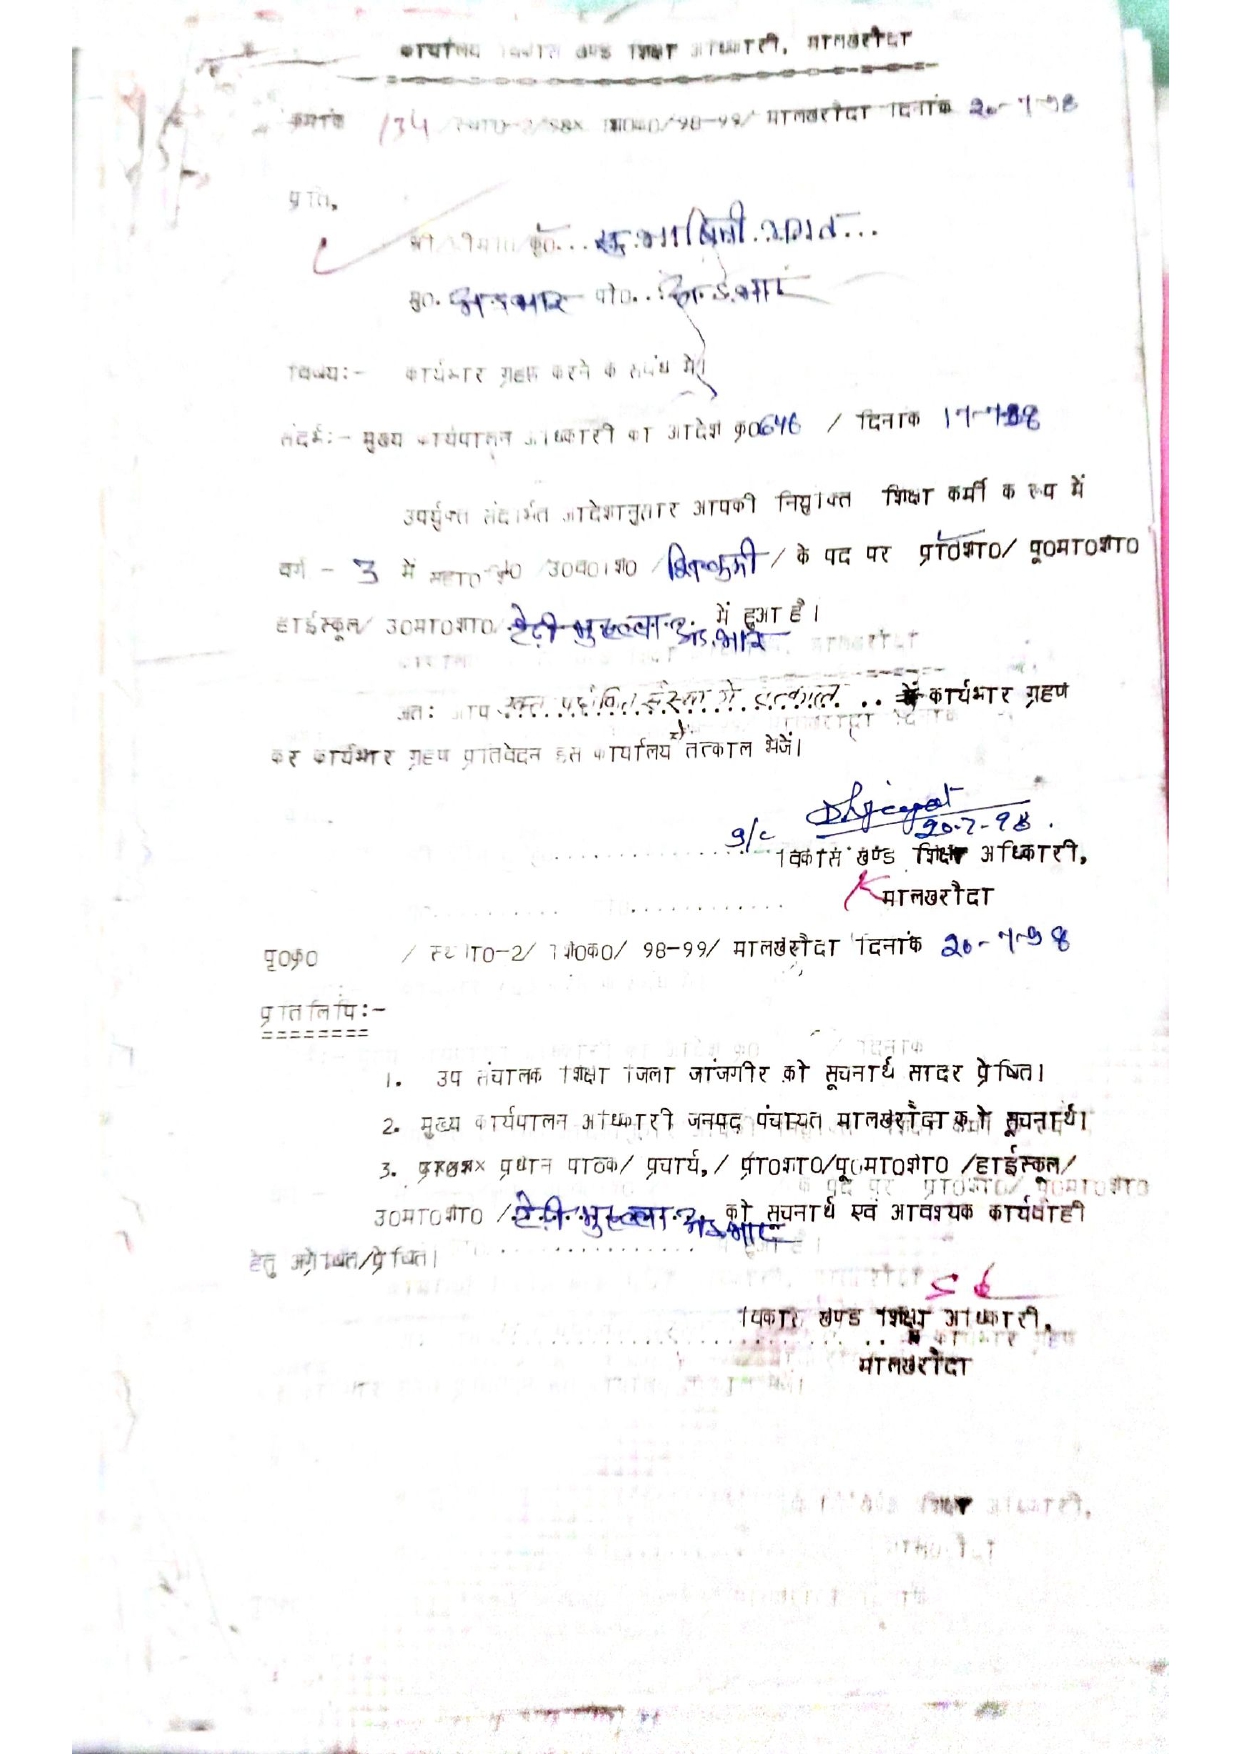 कार्यालय विकास खण्ड शिक्षा अधिकारी, मालखरौदा
क्रमांक 134 /स्था0-2/ /98-99/ मालखरौदा दिनांक 20-7-98
प्रति,
श्री श्रीमती कु0...
मु0. अड़भार पो0.. अड़भार
विषय:- कार्यभार ग्रहण करने के संबंध में।
संदर्भ:- मुख्य कार्यपालन अधिकारी का आदेश कृ0 646 / दिनांक 17-7-98
उपर्युक्त संदर्भित आदेशानुसार आपकी नियुक्ति शिक्षा कर्मी के रूप में
वर्ग - 3 में / के पद पर प्रा0शा0/ पू0मा0शा0
हाईस्कूल/ उ0मा0शा0/ अड़भार में हुआ है।
अतः आप उक्त पद संस्था में तत्काल .. में कार्यभार ग्रहण
कर कार्यभार ग्रहण प्रतिवेदन इस कार्यालय तत्काल भेजें।
20-7-98
विकास खण्ड शिक्षा अधिकारी,
मालखरौदा
पृ0कृ0 / स्था0-2/ 98-99/ मालखरौदा दिनांक 20-7-98
प्रतिलिपि:-
1. उप संचालक शिक्षा जिला जांजगीर को सूचनार्थ सादर प्रेषित।
2. मुख्य कार्यपालन अधिकारी जनपद पंचायत मालखरौदा को सूचनार्थ।
3. प्रधान पाठक/ प्रचार्य,/ प्रा0शा0/पू0मा0शा0 /हाईस्कूल/
उ0मा0शा0 / अड़भार को सूचनार्थ एवं आवश्यक कार्यवाही
हेतु अग्रेषित/प्रेषित।
विकास खण्ड शिक्षा अधिकारी,
मालखरौदा